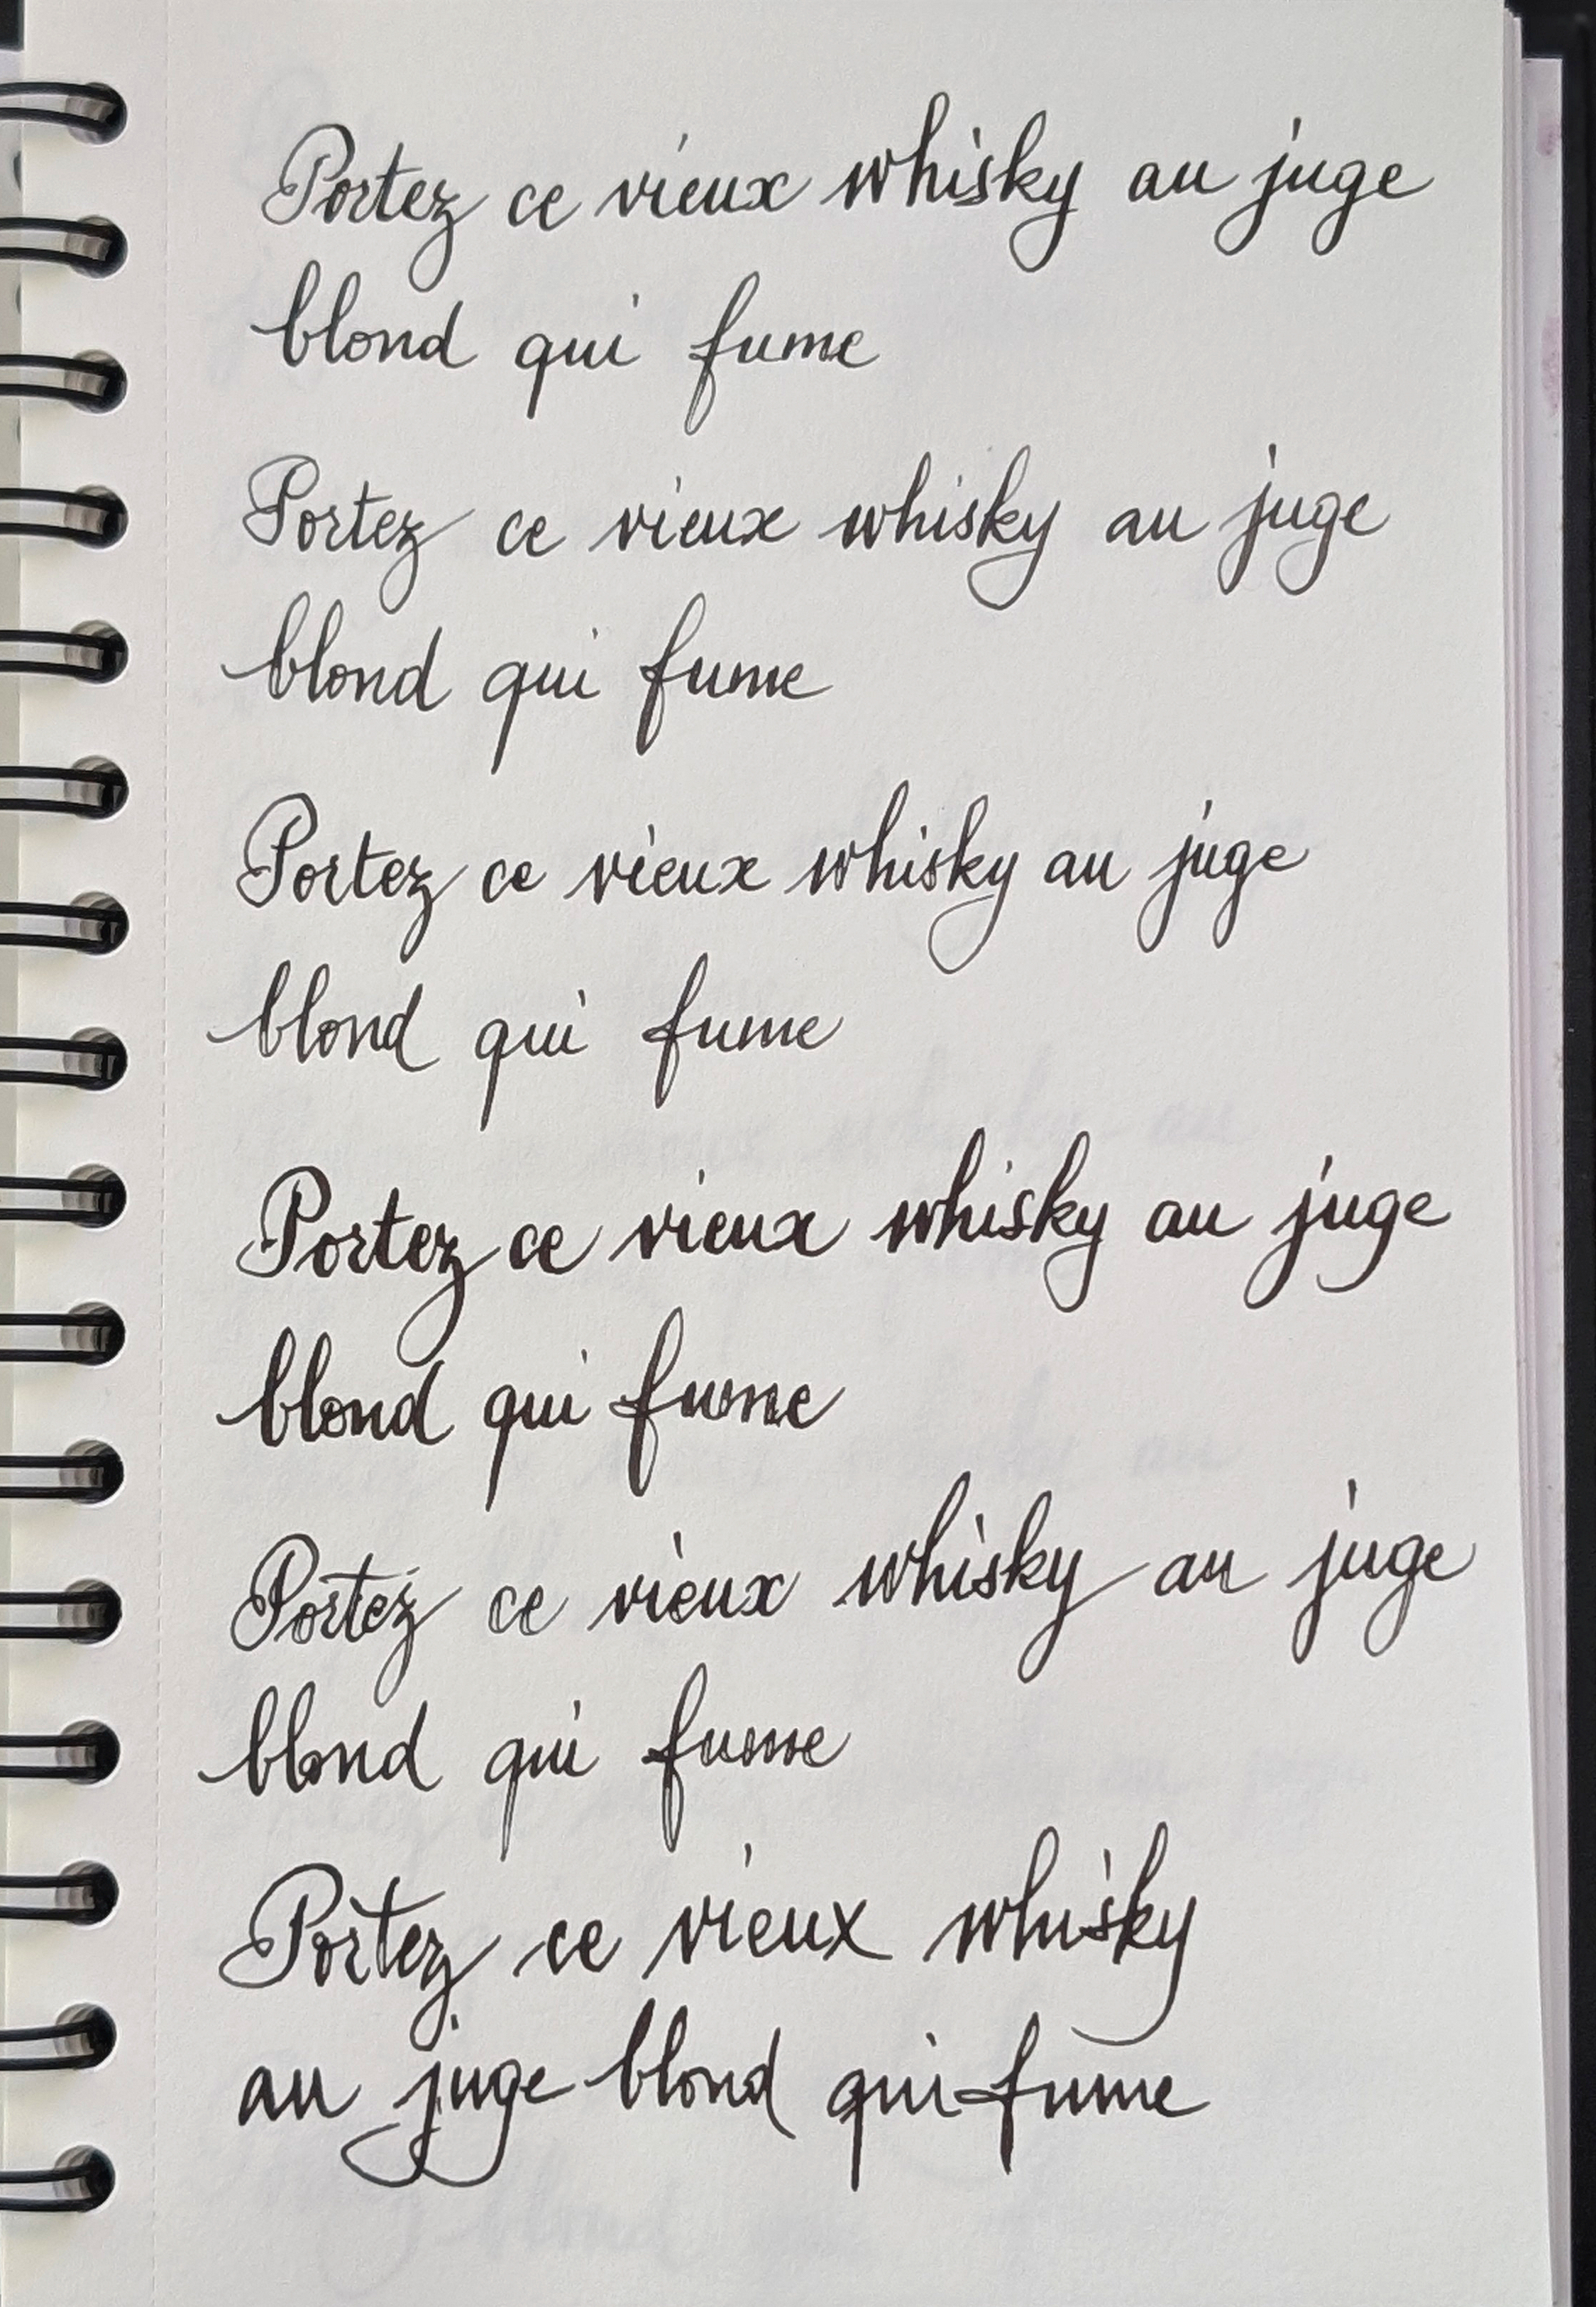 Portez ce vieux whisky au juge
blond qui fume
Portez ce vieux whisky au juge
blond qui fume
Portez ce vieux whisky au juge
blond qui fume
Portez ce vieux whisky au juge
blond qui fume
Portez ce vieux whisky au juge
blond qui fume
Portez ce vieux whisky
au juge blond qui fume